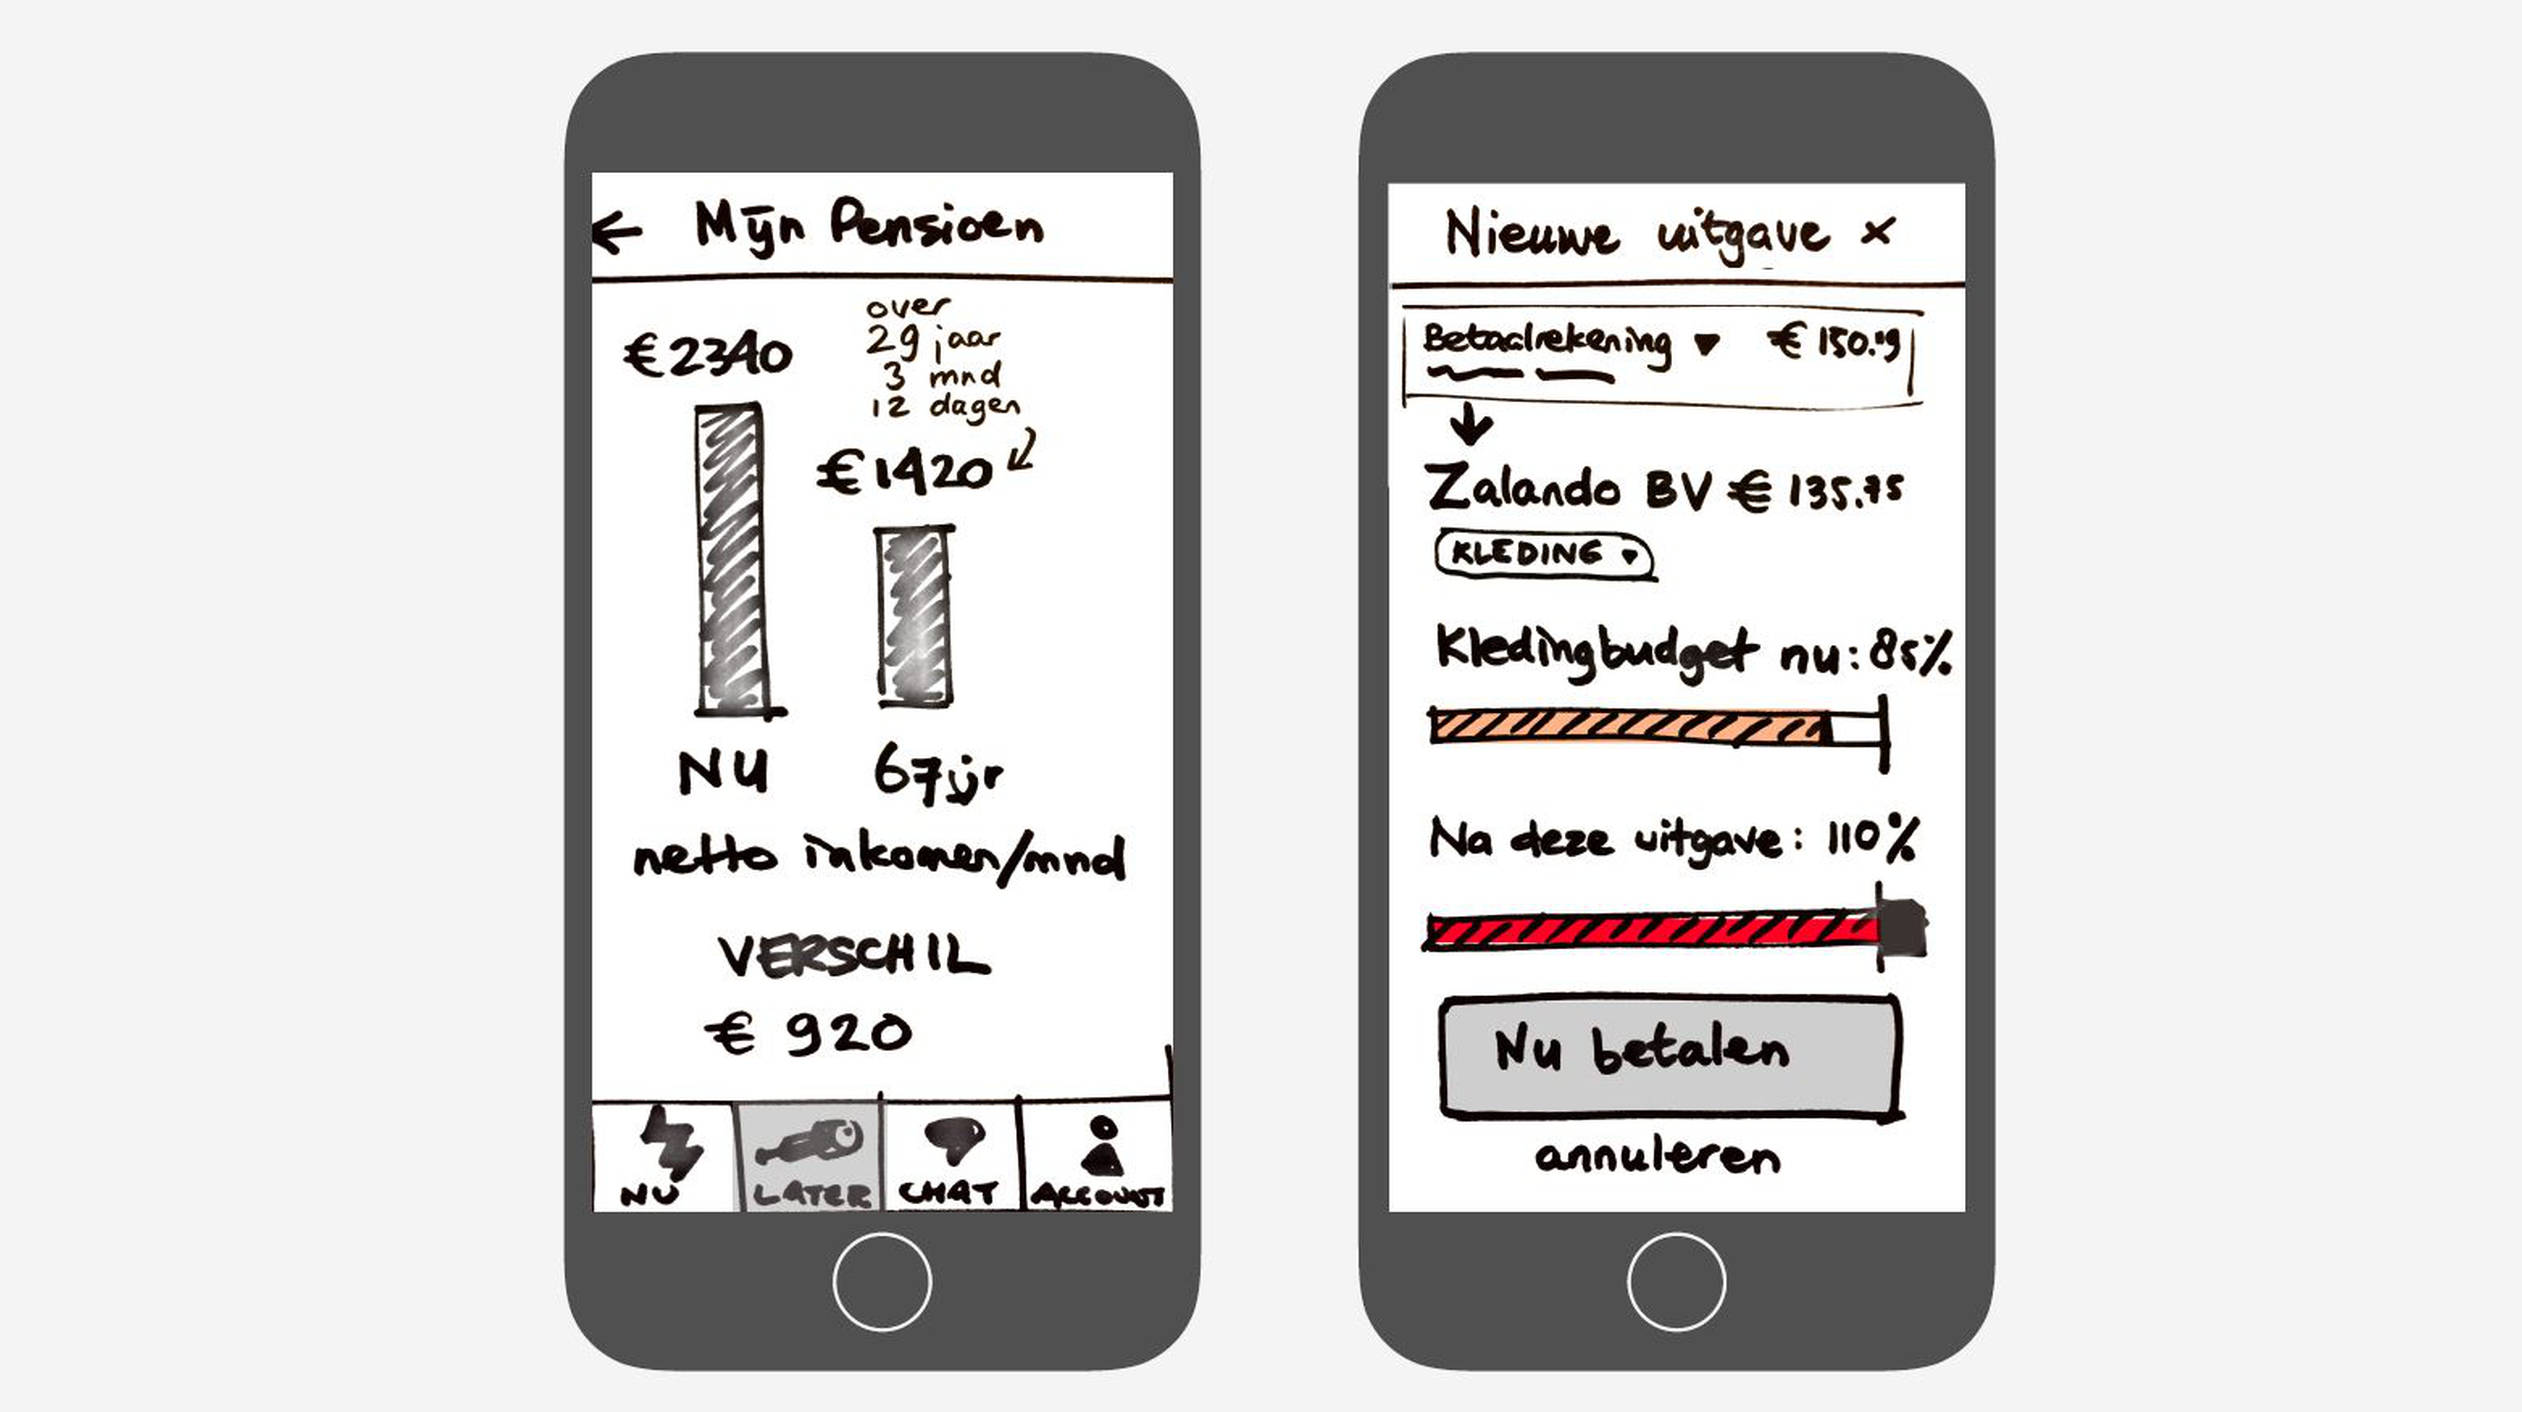 ← Mijn Pensioen
€2340
over
29 jaar
3 mnd
12 dagen
€1420
NU
67 jr
netto inkomen/mnd
VERSCHIL
€ 920
NU
LATER
CHAT
ACCOUNT
Nieuwe uitgave x
Betaalrekening ▼ € 150.19
Zalando BV € 135.75
KLEDING ▼
Kledingbudget nu: 85%
Na deze uitgave: 110%
Nu betalen
annuleren